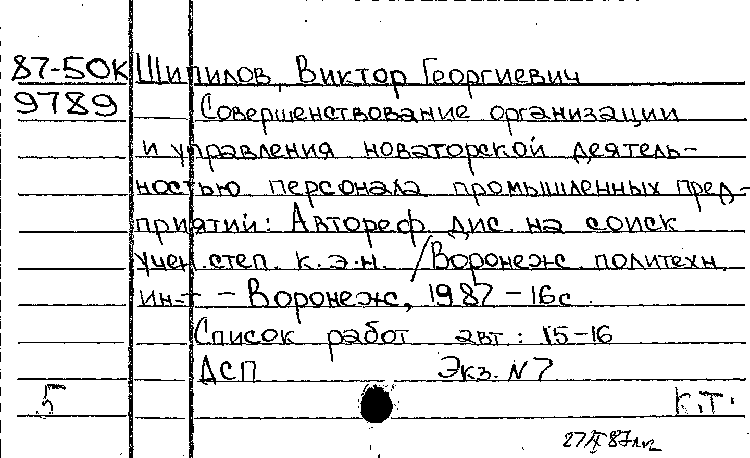 87-50К Шипилов, Виктор Георгиевич
9789 Совершенствование организации
и управления новаторской деятель-
ностью персонала промышленных пред-
приятий: Автореф. дис. на соиск
учен. степ. к.э.н. /Воронеж. политехн.
ин-т - Воронеж, 1987 - 16с.
Список работ авт.: 15-16
ДСП Экз. N 7
5 К.Т.